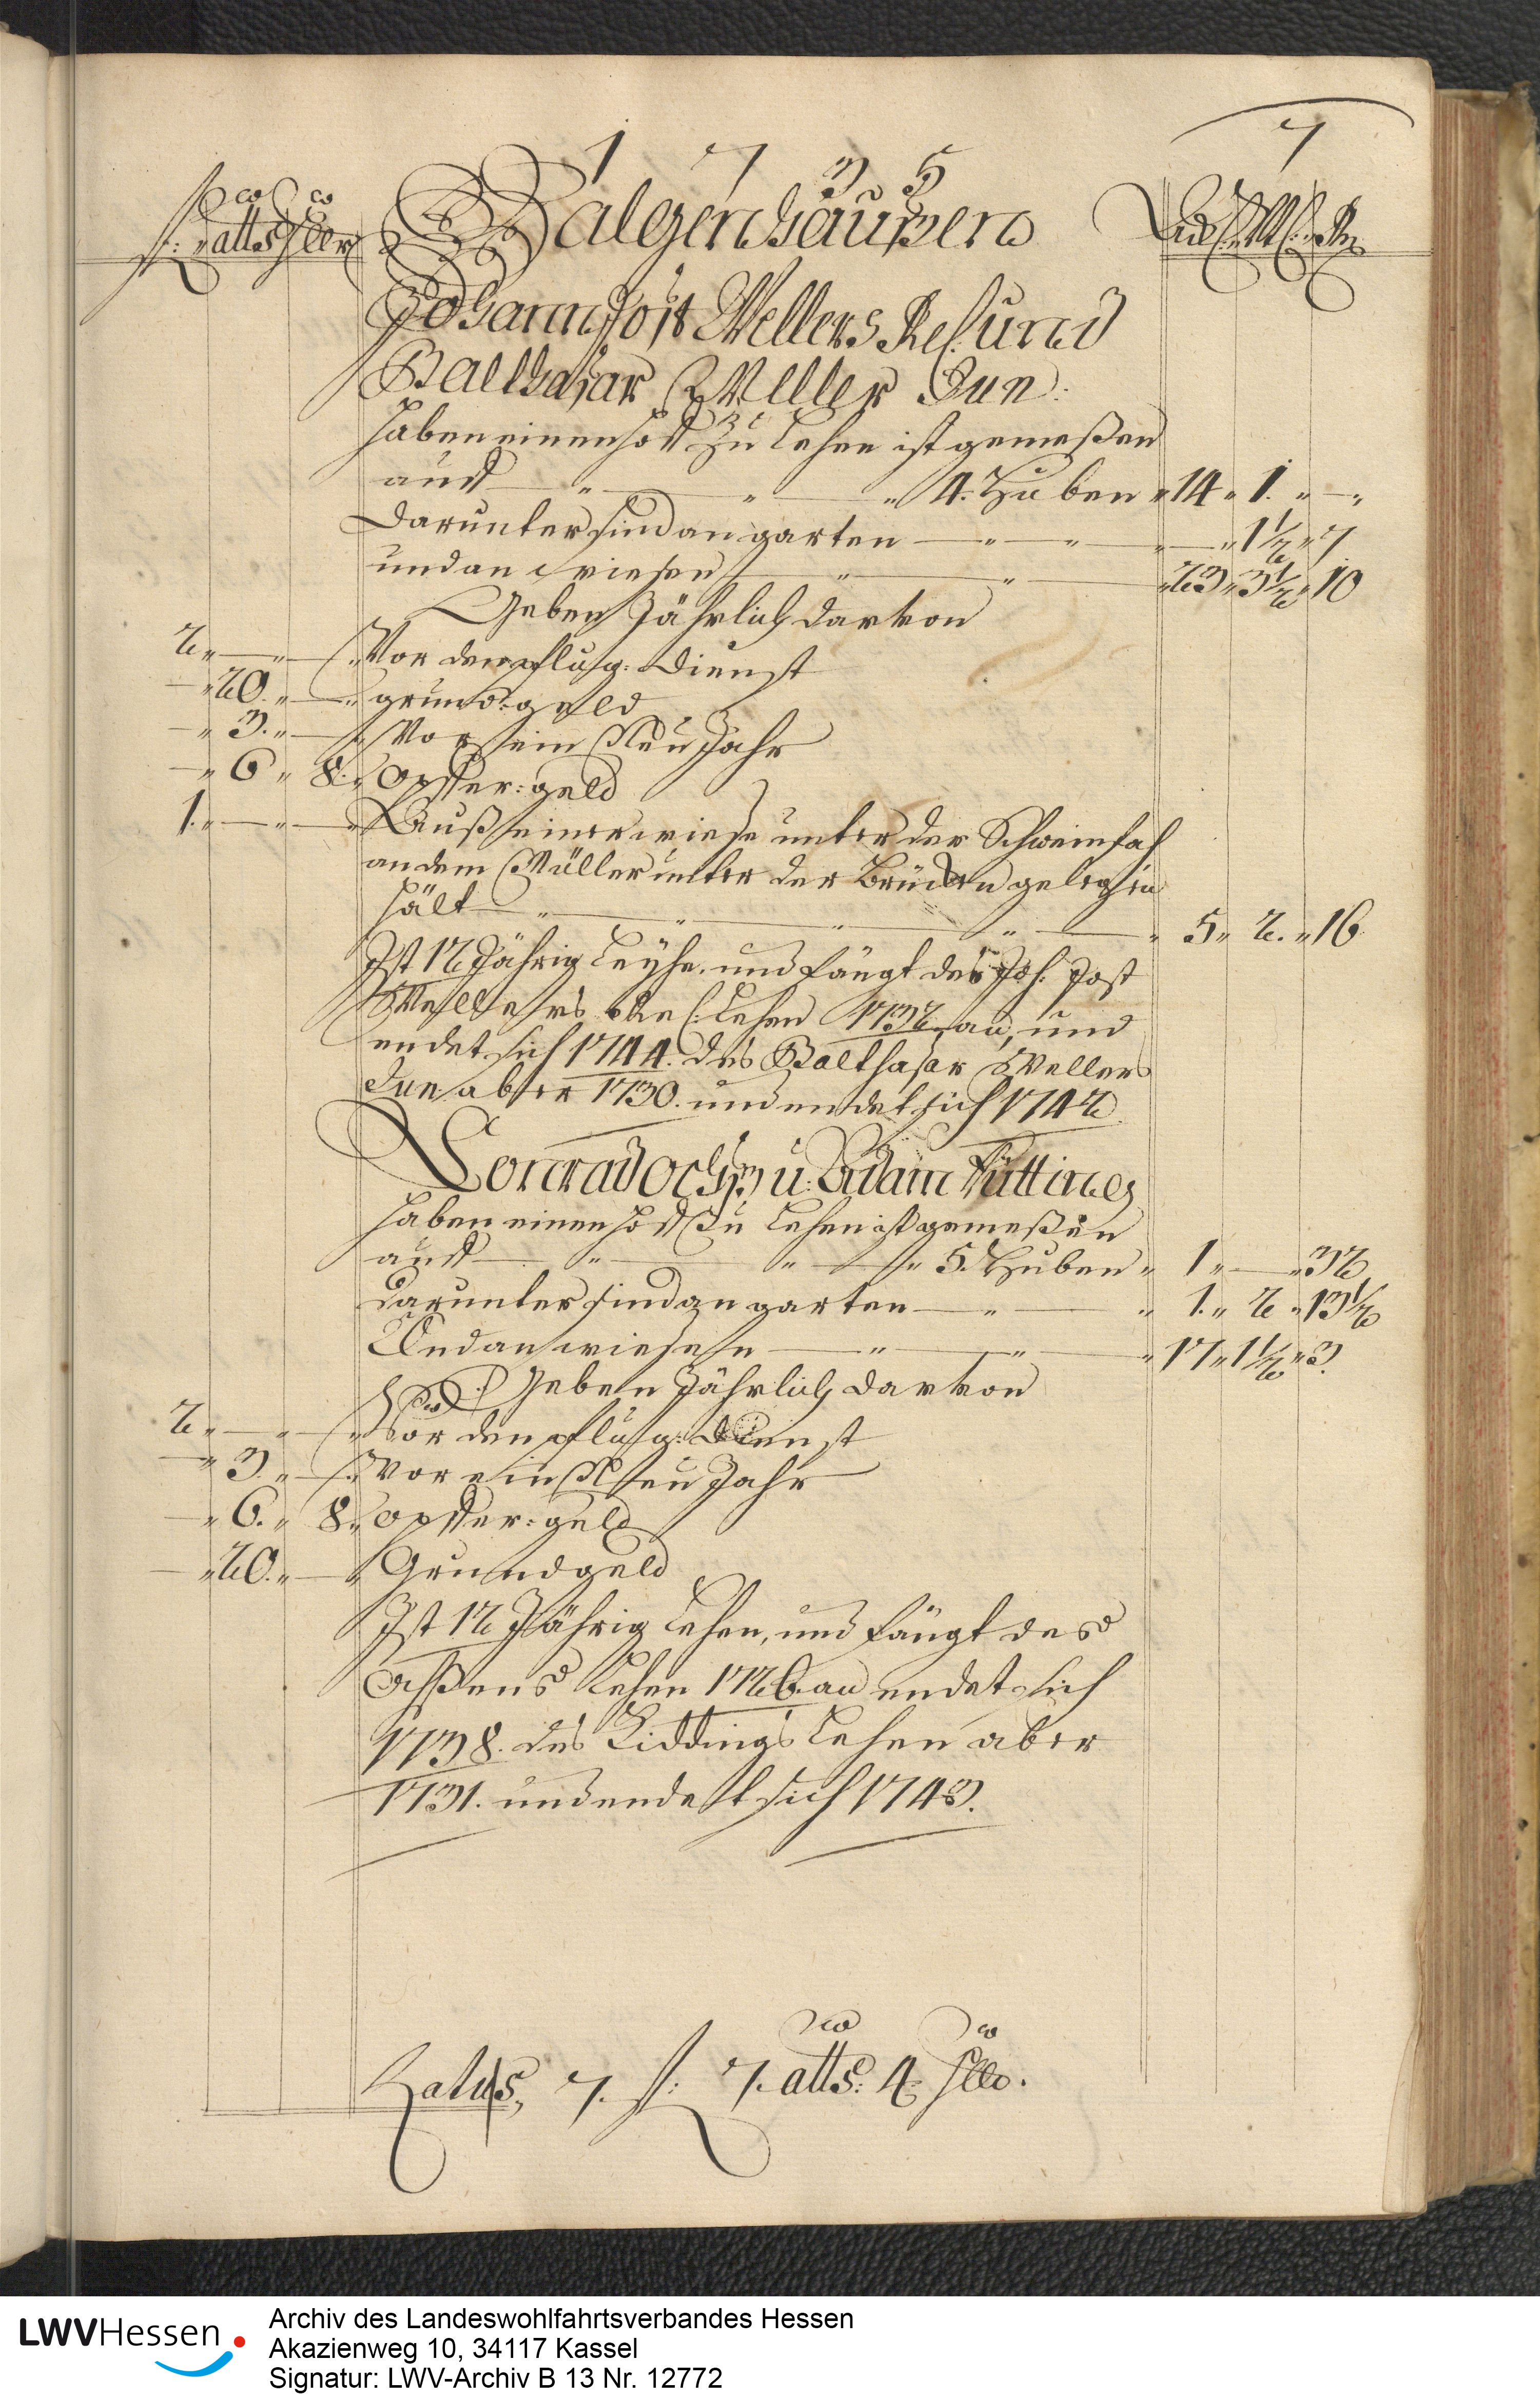 7
1735
f: atts hllr Balgenhaußen Ack: Vtl: Rt
Johann Jost Wellers Rel: und
Balthasar Weller Jun:
haben einen hoff Zu Lehen ist gemeßen
auff " " " 4. Huben " 14 " 1. " — "
darunter sind an garten — " — " — " — " 1½ " 7
und an wiesen — " — " — " 23 " 3½ " 10
Geben Jährlich darvon
2 " — " — " Vor den pflug: Dienst
— " 20. " — " grund geld
— " 3. " — " Vor ein Neu Jahr
— " 6 " 8. " Opffer: geld
1. " — " — " Auß einer wiese unter der
an dem Müller unter der Brücken gelegen
hält — " — " — " — " — " 5 " 2. " 16
Ist 12 Jährig Leyhe. und fängt des Joh: Jost
Wellers Rel: Lehen 1732 an, und
endet sich 1744. des Balthasar Wellers
Jun aber 1730. und endet sich 1742
Conrad Ochß u: Adam Hütting
haben einen hoff Zu Lehen ist gemeßen
auff — " — " — " 5. Huben " 1 " — " 32
darunter sind an garten — " — " 1. " 2 " 13½
Und an wiesen — " — " — " 17 " 1½ " 3.
Geben Jährlich darvon
2 " — " — " Vor den pflug: Dienst
— " 3. " — " Vor ein Neu Jahr
— " 6. " 8. " Opffer: geld
— " 20. " — " Grundgeld
Ist 12 Jährig Lehen, und fängt des
Ochßens Lehen 1726. an endet sich
1738. des Lehen aber
1731. und endet sich 1743.
Latus, 7. f: 7. atts: 4. hllr.
LWVHessen
Archiv des Landeswohlfahrtsverbandes Hessen
Akazienweg 10, 34117 Kassel
Signatur: LWV-Archiv B 13 Nr. 12772